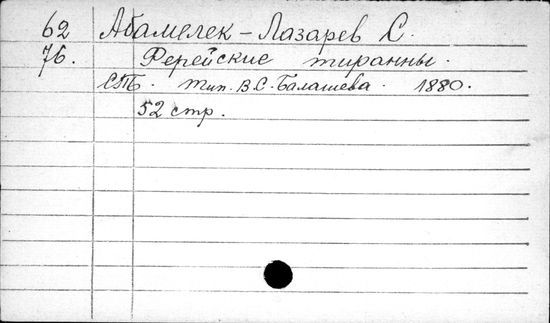 62 Абамелек-Лазарев С.
76. Ферейские тираны.
СПб. Тип. В.С. Балашева. 1880.
52 стр.